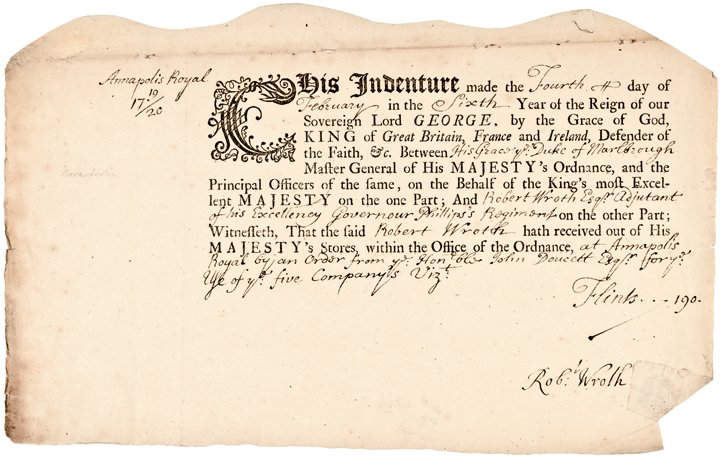 Annapolis Royal
17 19/20
Nova Scotia
This Indenture made the Fourth day of
February in the Sixth Year of the Reign of our
Sovereign Lord GEORGE, by the Grace of God,
KING of Great Britain, France and Ireland, Defender of
the Faith, &c. Between His Grace ye. Duke of Marlbrough
Master General of His MAJESTY's Ordnance, and the
Principal Officers of the same, on the Behalf of the King's most Excel-
lent MAJESTY on the one Part; And Robert Wroth Esqr. Adjutant
of his Excellency Governour Phillips's Regiment on the other Part;
Witnesseth, That the said Robert Wroth hath received out of His
MAJESTY's Stores, within the Office of the Ordnance, at Annapolis
Royal by an Order from ye. Honoble John Doucett Esqr. for ye.
Use of ye. five Companys Vizt.
Flints . . . 190.
Robt. Wroth